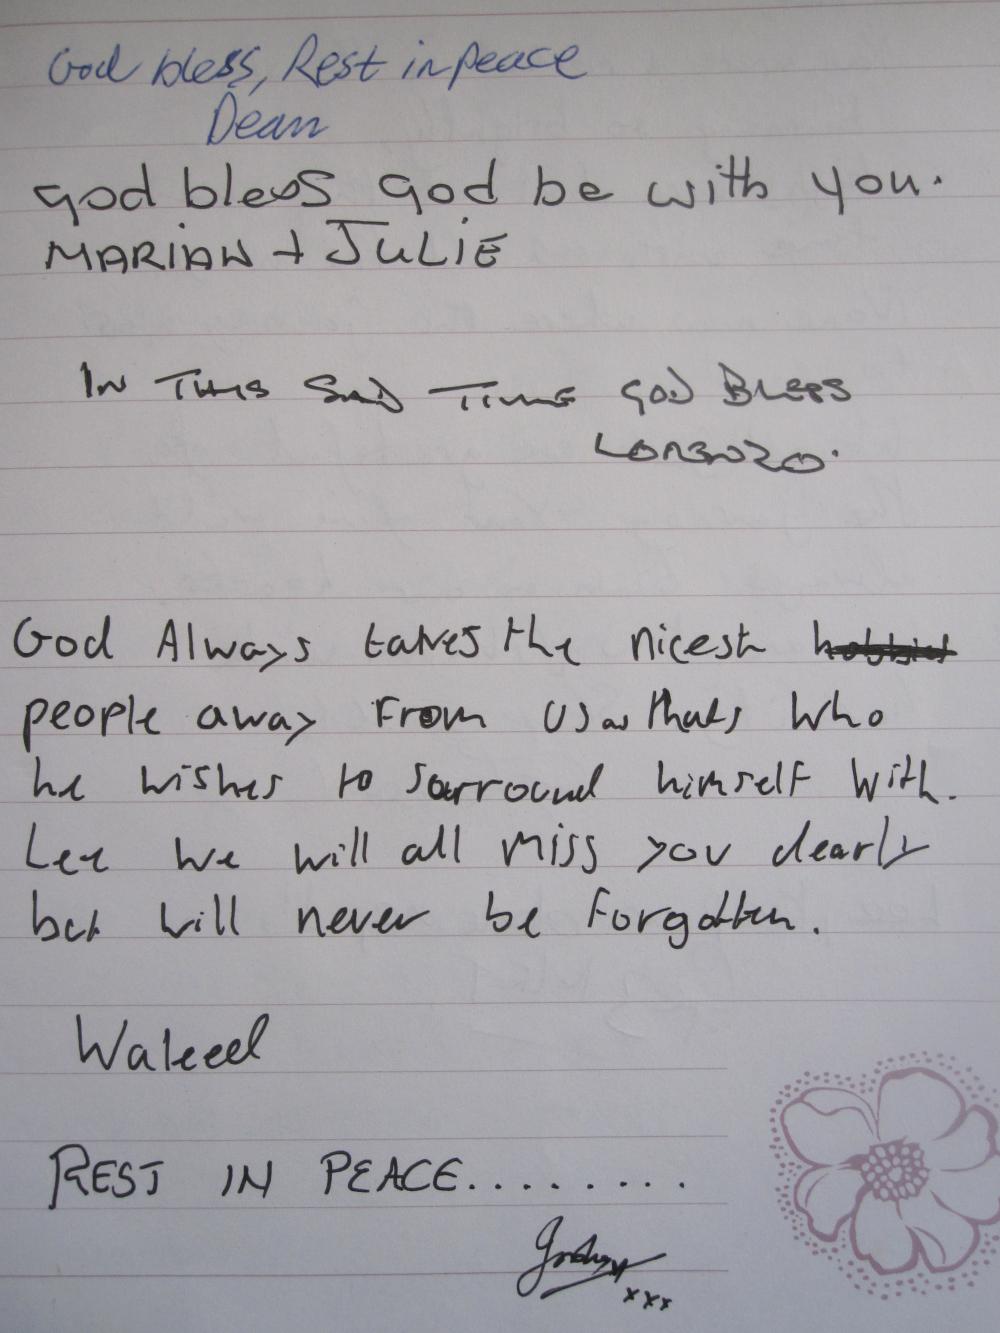 God bless, Rest in peace
Dean
God bless God be with you.
MARIAN + JULIE
IN THIS SAD TIME GOD BLESS
LORENZO.
God Always takes the nicest
people away From us as thats who
he wishes to sourround himself with.
Lee we will all miss you dearly
but will never be Forgotten.
Waleed
REST IN PEACE.........
xxx